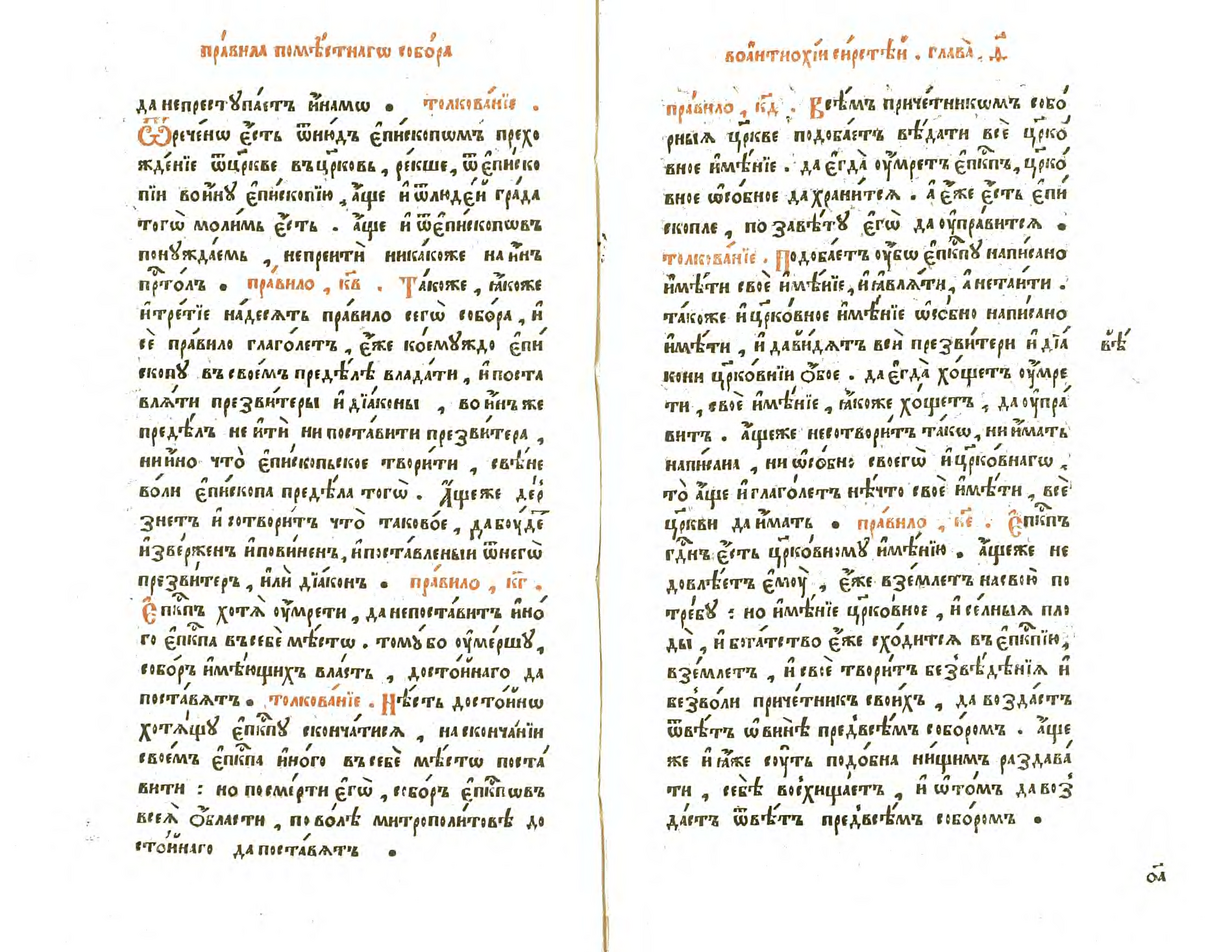 пра́вила помѣ́стнагѡ собо́ра
да непрестꙋпа́етъ и҆намѡ . толкова́нїе .
Ѿрече́нѡ є҆́сть ѿню́дъ є҆пи́скопѡмъ прехо
жде́нїе ѿцр҃кве въцр҃ковь , ре́кше , ѿ є҆пи́ско
пїи во и҆́нꙋ є҆пископі́ю , а҆́ще и҆ ѿлюде́й гра́да
тогѡ̀ моли́мь є҆́сть . а҆́ще и҆ ѿє҆пи́скопѡвъ
понꙋжда́емь , непреитѝ ника́коже на и҆́нъ
прⷭ҇то́лъ . пра́вило , к҃в . Та́коже , ꙗ҆́коже
и҆ тре́тїе на́десѧть пра́вило сегѡ̀ собо́ра , и҆
сѐ пра́вило глаго́летъ , є҆́же коемꙋ́ждо є҆пи́
скопꙋ въ свое́мъ предѣ́лѣ влада́ти , и҆ поста
влѧ́ти презви́теры и҆ дїа́коны , во и҆́нъ же
предѣ́лъ не и҆тѝ ни поста́вити презви́тера ,
ни и҆́но что̀ є҆пи́скопьское твори́ти , свѣ́не
во́ли є҆пи́скопа предѣ́ла тогѡ̀ . А҆́ще же де́р
знетъ и҆ сотвори́тъ что̀ таково́е , да бꙋ́де
и҆зве́рженъ и҆ пови́ненъ, и҆ поста́вленыи ѿнегѡ̀
презви́теръ , и҆лѝ дїа́конъ . пра́вило , к҃г .
Є҆пⷭ҇кпъ хотѧ̀ ᲂу҆мре́ти , да непоста́витъ и҆но́
го є҆пⷭ҇кпа въ себѐ мѣ́стѡ . томꙋ́ бо ᲂу҆ме́ршꙋ ,
собо́ръ и҆мѣ́ющихъ вла́сть , досто́йнаго да
поста́вѧтъ . толкова́нїе . Нѣ́сть досто́йнѡ
хотѧ́щꙋ є҆пⷭ҇кпꙋ сконча́тисѧ , на сконча́нїи
свое́мъ є҆пⷭ҇кпа и҆но́го въ себѐ мѣ́стѡ поста́
вити : но по сме́рти є҆гѡ̀ , собо́ръ є҆пⷭ҇кпѡвъ
всеѧ̀ ѻ҆́бласти , по во́лѣ митрополи́товѣ до
сто́йнаго да поста́вѧтъ .
во а҆нтиохі́и си́рстѣй . глава̀ , д҃ .
пра́вило , к҃д . Всѣ́мъ приче́тникѡмъ собо́
рныѧ цр҃кве подоба́етъ вѣ́дати всѐ цр҃ко́
вное и҆мѣ́нїе . да є҆гда̀ ᲂу҆́мретъ є҆пⷭ҇кпъ, цр҃ко́
вное ѡ҆со́бное да храни́тсѧ . а є҆́же є҆́сть є҆пи́
скопле , по завѣ́тꙋ є҆гѡ̀ да ᲂу҆пра́витсѧ .
толкова́нїе . Подоба́етъ ᲂу҆́бѡ є҆пⷭ҇кпꙋ написано
и҆мѣ́ти своѐ и҆мѣ́нїе, и҆ ꙗ҆влѧ́ти, а нетаи́ти .
та́коже и҆ цр҃ко́вное и҆мѣ́нїе ѡ҆со́бно написано
и҆мѣ́ти , и҆ да ви́дѧтъ вси презви́тери и҆ дїа́
кони цр҃ко́внїи ѻ҆́бое . да є҆гда̀ хо́щетъ ᲂу҆мре́
ти , своѐ и҆мѣ́нїе , ꙗ҆́коже хо́щетъ , да ᲂу҆пра́
витъ . а҆́ще же несотвори́тъ та́кѡ , ни и҆́мать
написана , ни ѡ҆со́бно своегѡ̀ и҆ цр҃ко́внагѡ ,
то̀ а҆́ще и҆ глаго́летъ нѣ́что своѐ и҆мѣ́ти , всѐ
цр҃кви да и҆́мать . пра́вило , к҃е . Є҆пⷭ҇кпъ
гдⷭ҇нъ є҆́сть цр҃ко́вномꙋ и҆мѣ́нїю . а҆́ще же не
довлѣ́етъ є҆мꙋ̀ , є҆́же взе́млетъ на свою̀ по
тре́бꙋ : но и҆мѣ́нїе цр҃ко́вное , и҆ се́лныѧ пло
ды̀ , и҆ бога́тство є҆́же схо́дитсѧ въ є҆пⷭ҇кпїю̀ ,
взе́млетъ , и҆ своѐ твори́тъ без вѣ́дѣнїѧ и҆
без во́ли приче́тникъ свои́хъ , да возда́стъ
ѿвѣ́тъ ѡ҆ винѣ̀ предвсѣ́мъ собо́ромъ . а҆́ще
же и҆ ꙗ҆́же сꙋ́ть подо́бна ни́щимъ раздава́
ти , себѣ̀ восхища́етъ , и҆ ѡ҆ то́мъ да воз
да́стъ ѿвѣ́тъ предвсѣ́мъ собо́ромъ .
о҃а